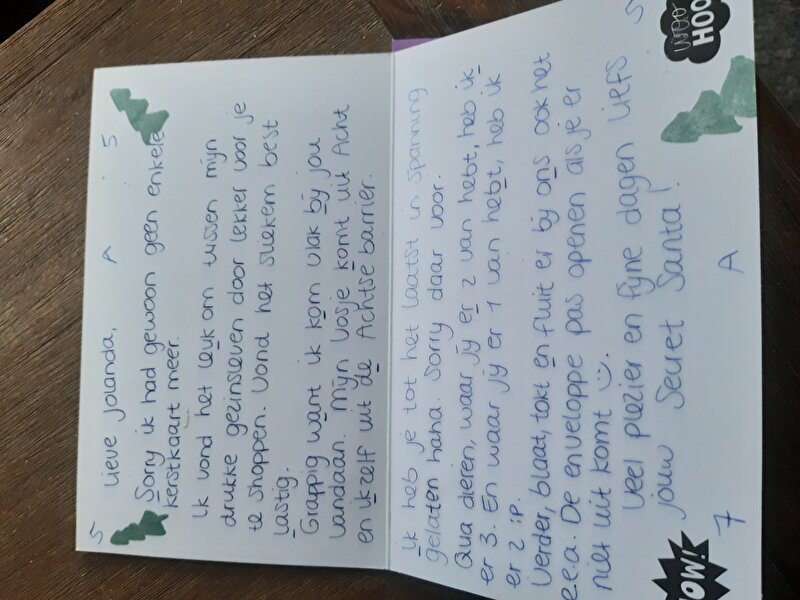 5
Lieve Jolanda, A 5
Sorry ik had gewoon geen enkele
kerstkaart meer.
Ik vond het leuk om tussen mijn
drukke gezinsleven door lekker voor je
te shoppen. Vond het stiekem best
lastig.
Grappig want ik kom vlak bij jou
vandaan. Mijn Vosje komt uit Acht
en ikzelf uit de Achtse barrier.
ik heb je tot het laatst in spanning
gelaten haha. Sorry daar voor.
Qua dieren, waar jij er 2 van hebt, heb ik
er 3. En waar jij er 1 van hebt, heb ik
er 2 :P.
Verder, blaat, tokt en fluit er bij ons ook het
e.e.a. De enveloppe pas openen als je er
niet uit komt
Veel plezier en fijne dagen Liefs 5
jouw Secret Santa!
WOW!
WOO
HOO
7 A